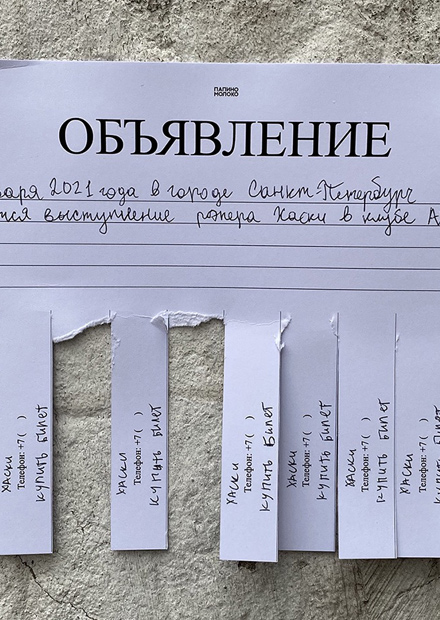 ПАПИНО
МОЛОКО
ОБЪЯВЛЕНИЕ
2021 года в городе Санкт-Петербург
выступление рэпера Хаски в клубе
ХАСКИ
Телефон: +7 ( )
КУПИТЬ БИЛЕТ
ХАСКИ
Телефон: +7 ( )
КУПИТЬ БИЛЕТ
ХАСКИ
Телефон: +7 ( )
КУПИТЬ БИЛЕТ
ХАСКИ
Телефон: +7 ( )
КУПИТЬ БИЛЕТ
ХАСКИ
Телефон: +7 ( )
КУПИТЬ БИЛЕТ
ХАСКИ
Телефон: +7 ( )